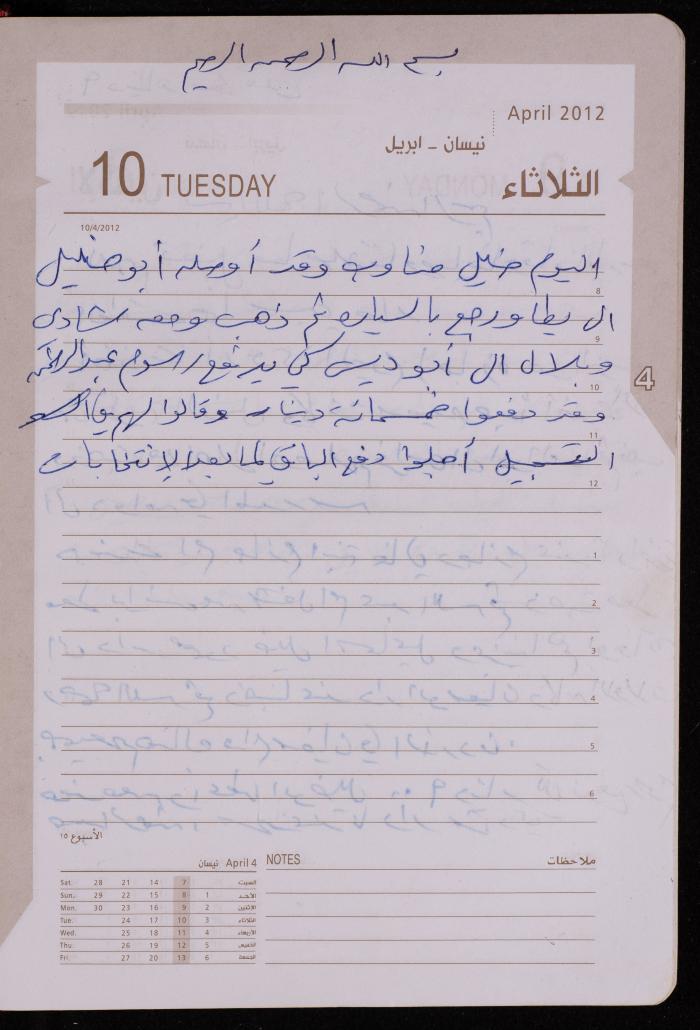 بسم الله الرحمن الرحيم
April 2012
نيسان - ابريل
10 TUESDAY الثلاثاء
10/4/2012
اليوم خليل مناوب وقد أوصله أبو خليل
8
الى يطا ورجع بالسياره ثم ذهب ومعه شادي
9
وبلال الى أبو ديس كي يدفع رسوم عبد الرحمن
4
10
وقد دفعوا خمسمائة دينار وقالوا لهم في
11
التسجيل أجلوا دفع الباقي لما بعد الانتخابات
12
1
2
3
4
5
6
الأسبوع ١٥
April 4 نيسان
NOTES ملاحظات
Sat. 28 21 14 7 السبت
Sun. 29 22 15 8 1 الأحد
Mon. 30 23 16 9 2 الاثنين
Tue. 24 17 10 3 الثلاثاء
Wed. 25 18 11 4 الأربعاء
Thu. 26 19 12 5 الخميس
Fri. 27 20 13 6 الجمعة